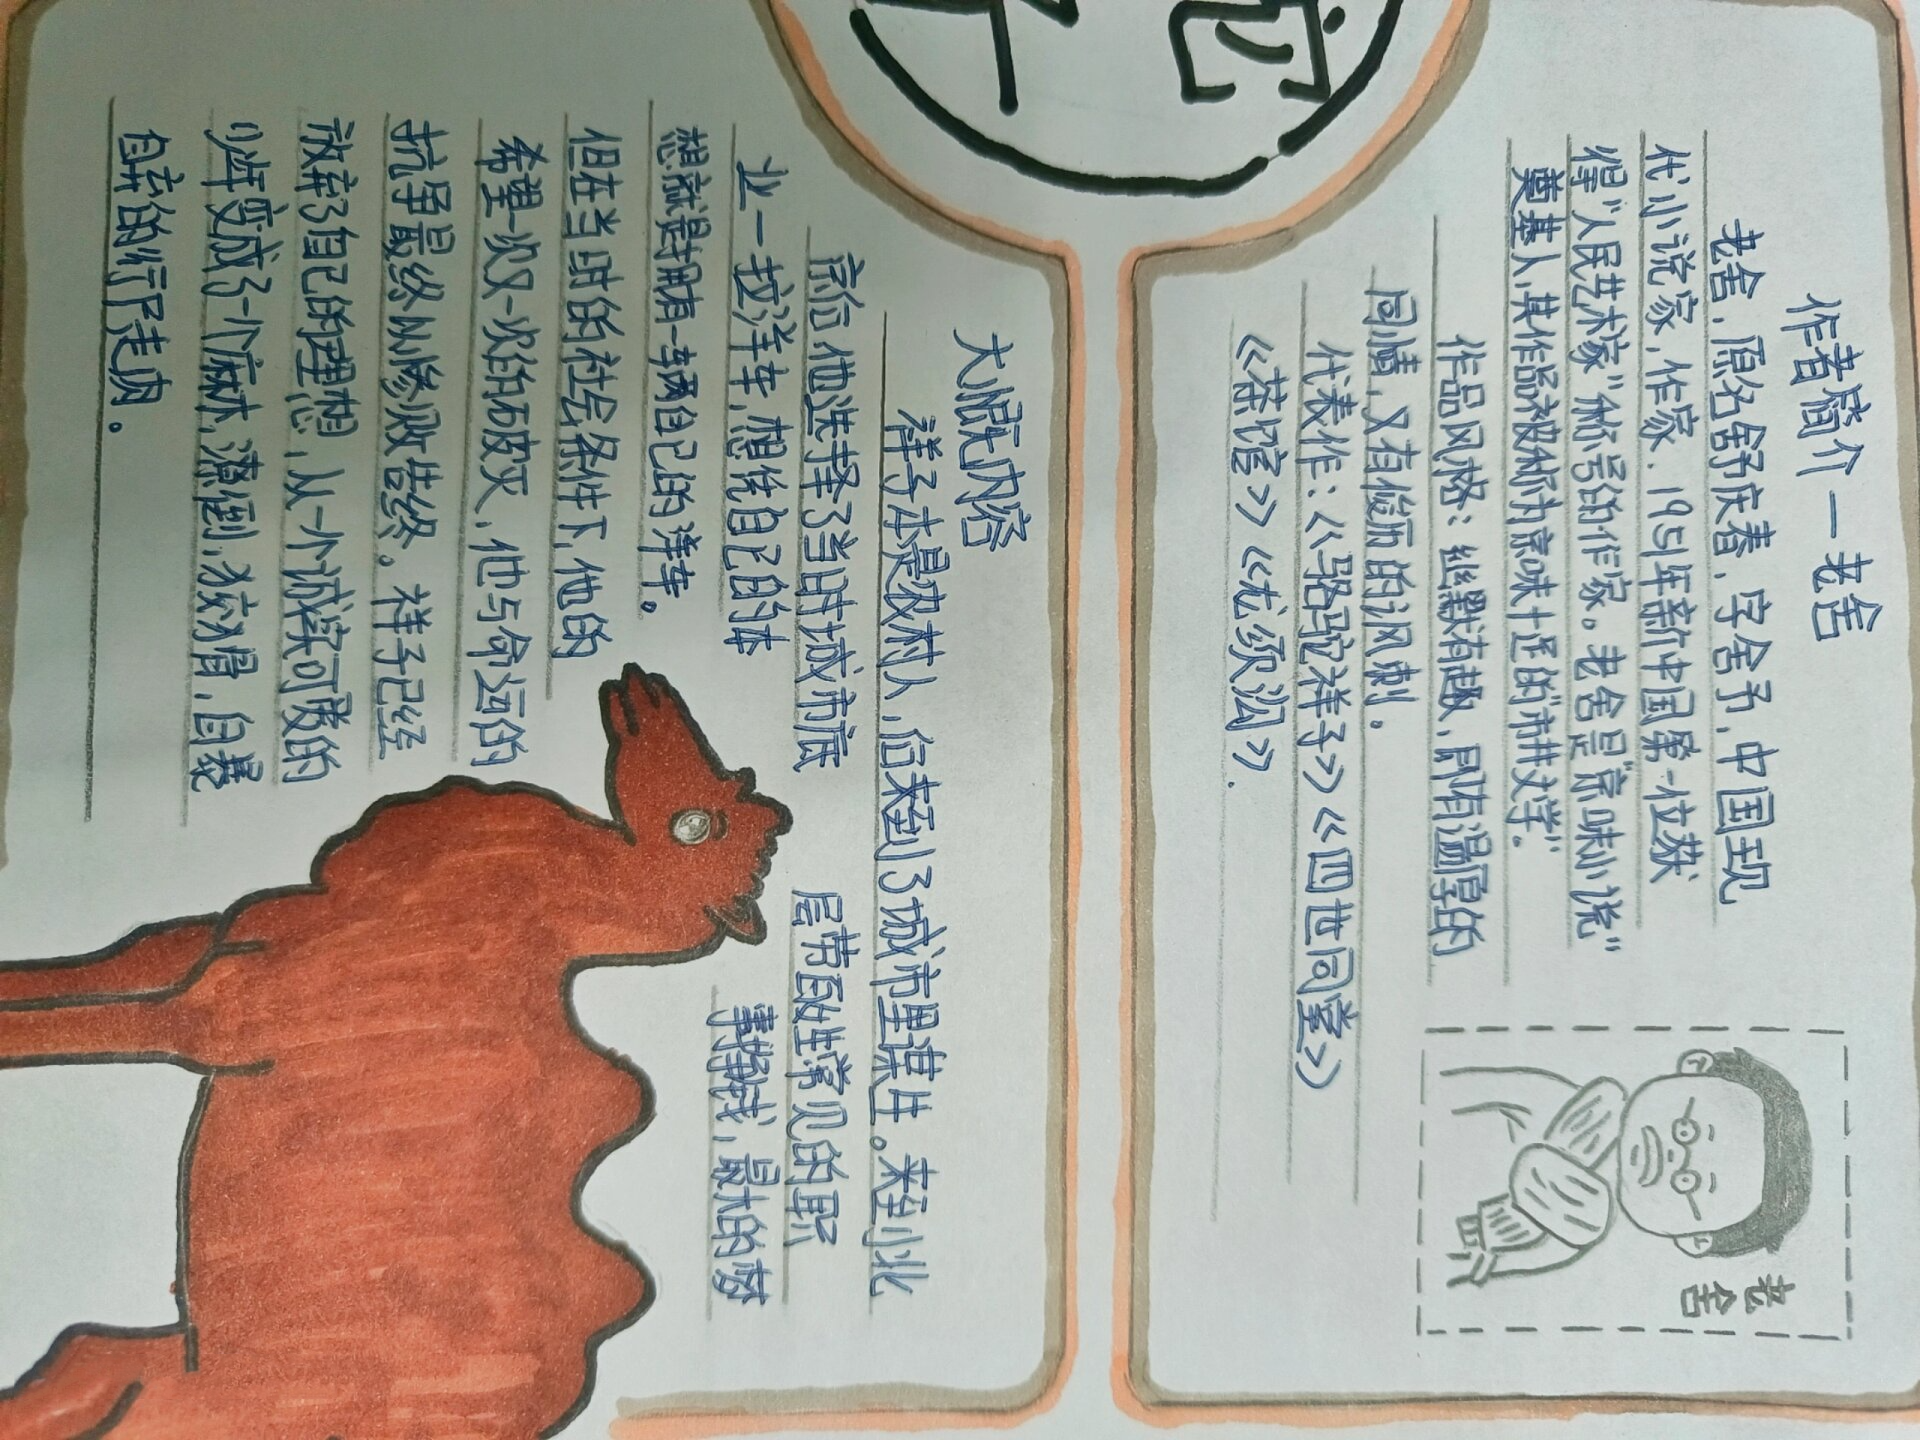 作者简介一老舍
老舍，原名舒庆春，字舍予，中国现
代小说家，作家．1951年新中国第一位获
得"人民艺术家"称号的作家。老舍是"京味小说"
奠基人，其作品被称为京味十足的"市井文学"．
作品风格：幽默有趣，即有温厚的
同情，又有俊厉的讽刺．
代表作：《骆驼祥子》《四世同堂》
《茶馆》《龙须沟》．
老舍
驼
子
大概内容
祥子本是农村人，后来到了城市里谋生。来到北
京后他选择了当时城市底层劳苦众生常见的职
业一拉洋车，想凭自己的本事挣钱，最大的梦
想就是拥有一车两自己的洋车。
但在当时的社会条件下，他的
希望一次又一次的破灭，他与命运的
抗争最终以惨败告终。祥子已经
放弃了自己的理想，从一个诚实可爱的
少年变成了一个麻木，潦倒，狡猾，自暴
自弃的行尸走肉．